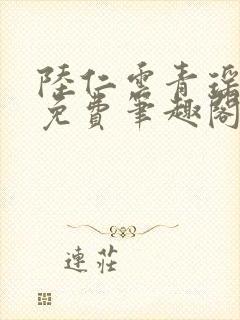 陸仁雲青瑤
免費筆趣閣
連莊